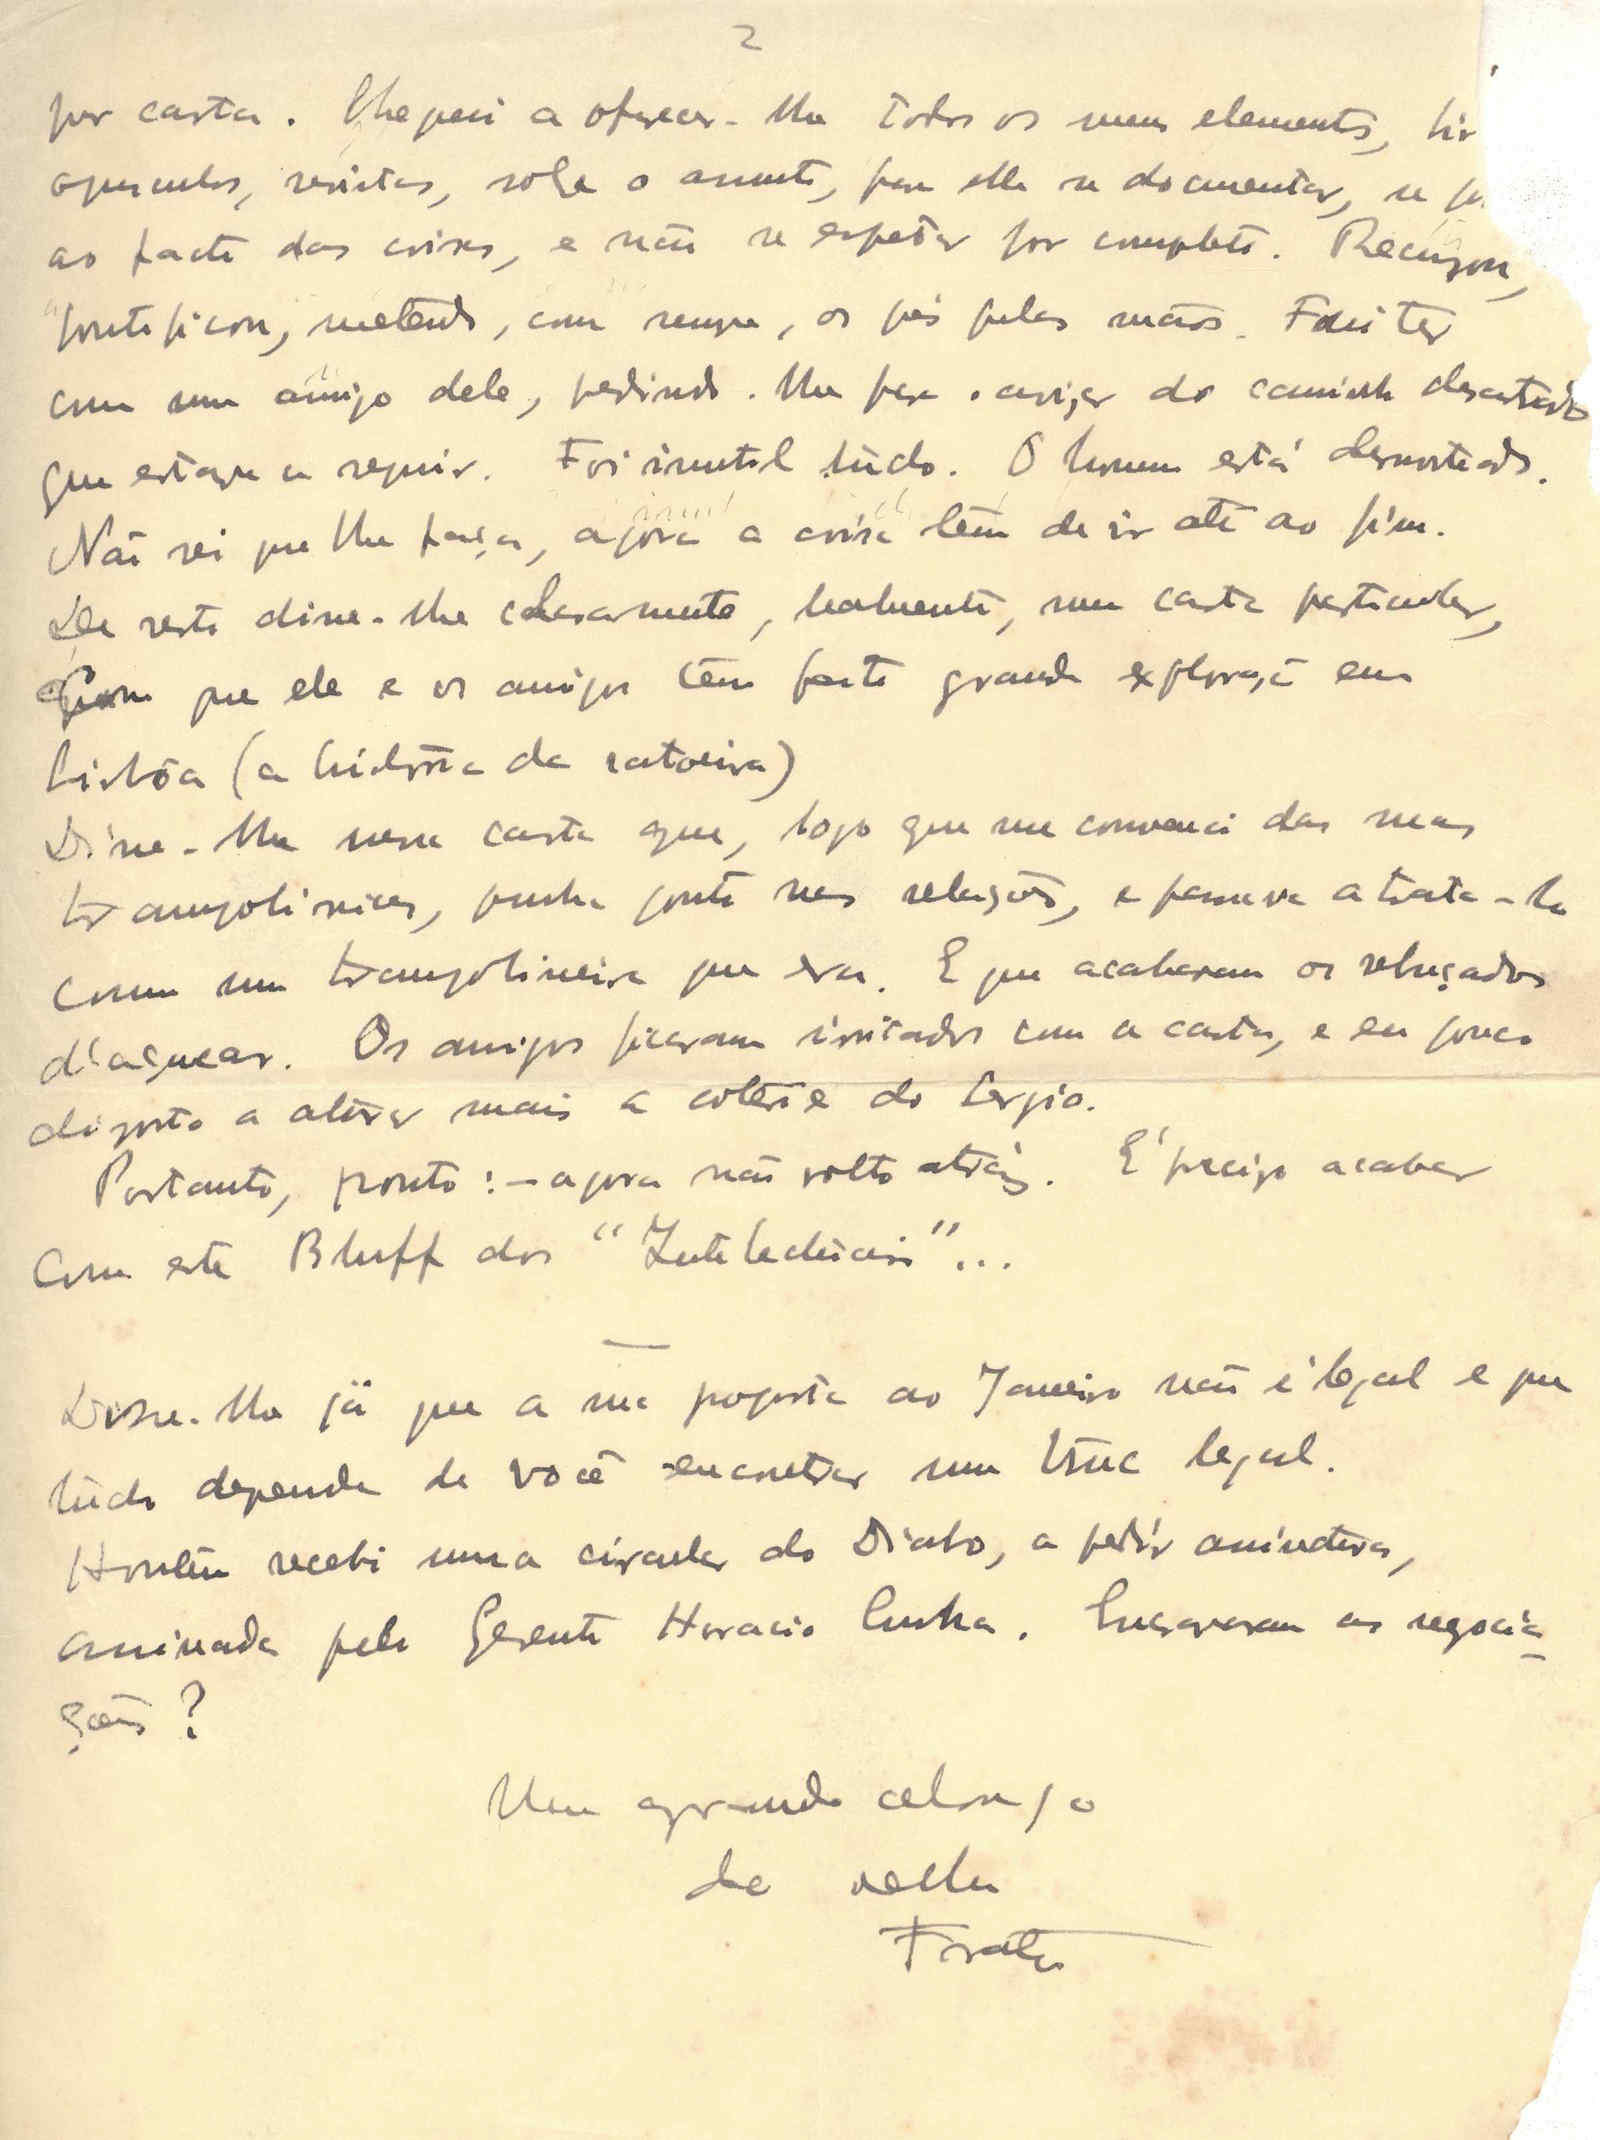 2
por carta. Cheguei a oferecer-lhe todos os meus elementos, liv
opusculos, revistas, sobre o assunto, para elle se documentar, se
ao facto das coisas, e não se espetar por completo. Recusou,
pontificou, metendo, como sempre, os pés pelas mãos. Fui ter
com um amigo dele, pedindo-lhe para o avisar do caminho desastrado
que estava a seguir. Foi inutil tudo. O homem está desnorteado.
Não sei que lhe faça, agora a coisa têm de ir até ao fim.
De resto disse-lhe claramente, lealmente, numa carta particular,
com que ele e os amigos têm feito grande exploração em
Lisbôa (a história da ratoeira)
Disse-lhe nessa carta que, logo que me convenci das suas
trampolinices, punha ponto nas relações, e passava a trata-lo
como um trampolineiro que era. E que acabaram os rebuçados
d'açucar. Os amigos ficaram irritados com a carta, e eu pouco
disposto a aturar mais a coterie do Sergio.
Portanto, pronto: – agora não volto atrás. É preciso acabar
com este Bluff dos "Intelectuais"...
Disse-lhe já que a sua proposta ao Janeiro não é legal e que
tudo depende de você encontrar um truc legal.
Hontem recebi uma circular do Diabo, a pedir assinaturas,
assinada pelo Gerente Horacio Cunha. Encravaram as negocia-
ções?
Um grande abraço
do velho